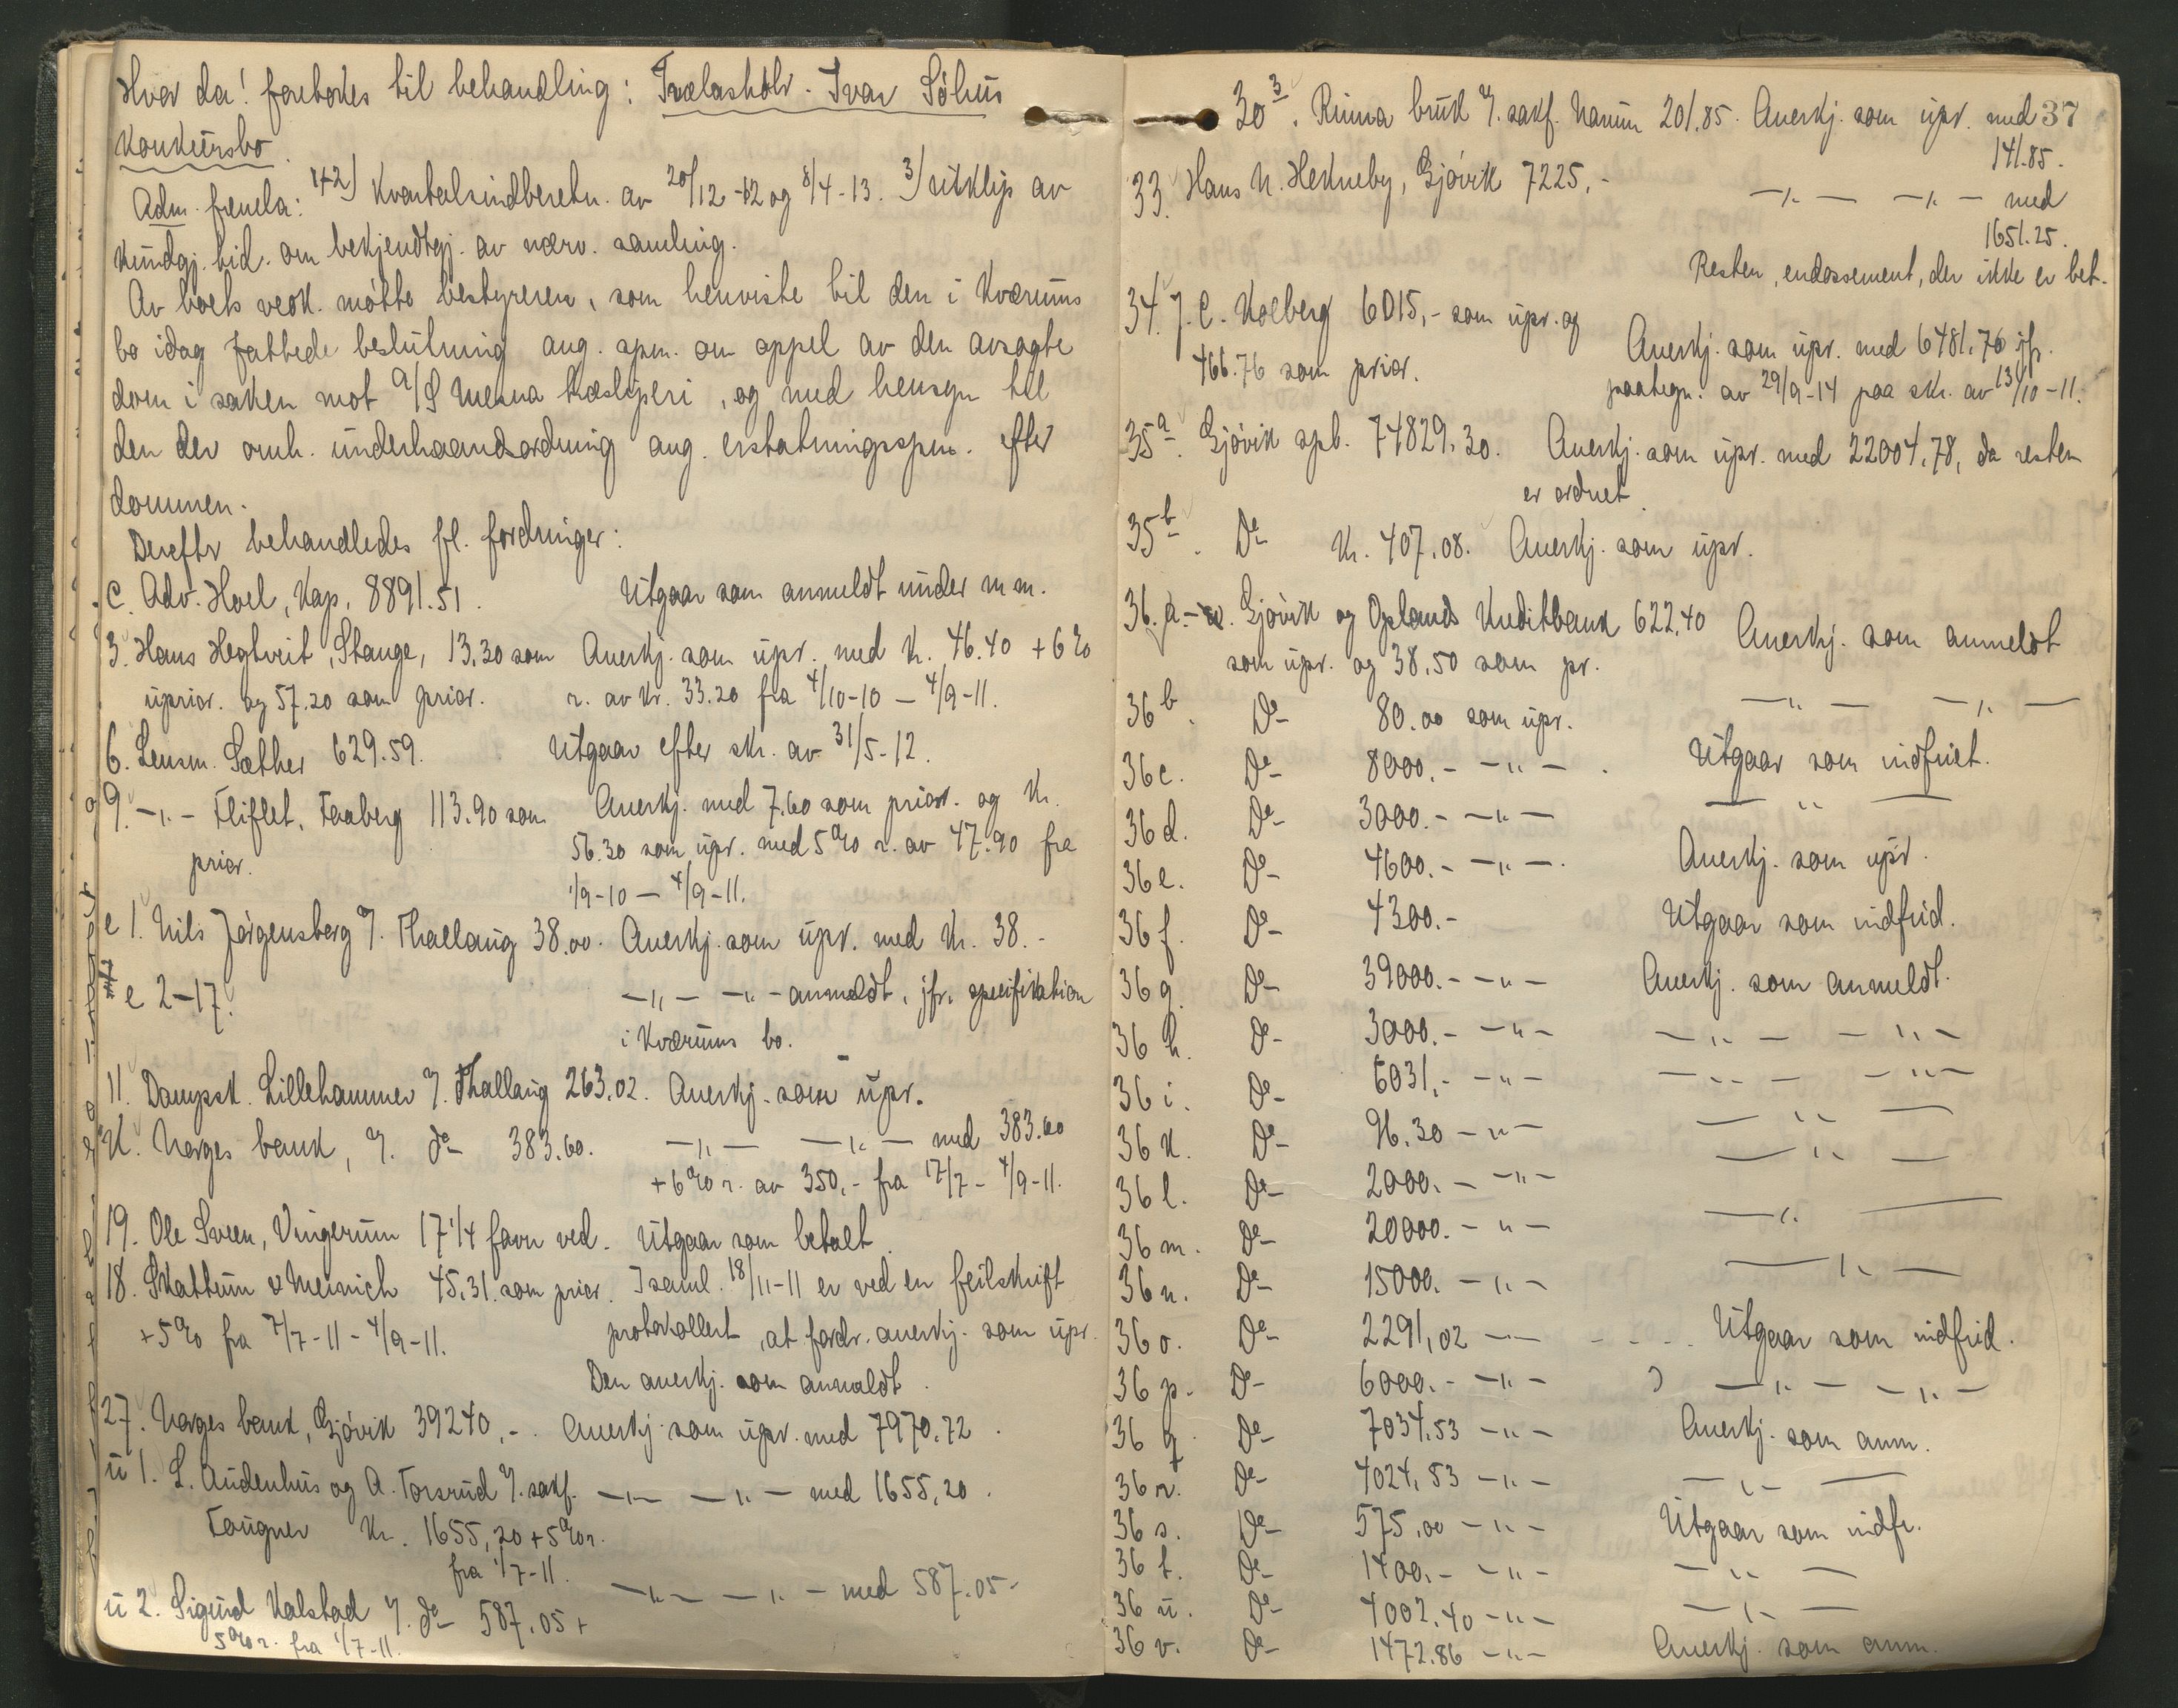 Hvor da! foretokes til behandling: Trælasthdlr. Ivar Söhus
Konkursbo.
Adm. freml: 1+2) Kvartalsindberetn. av 20/12-12 og 8/4-13. 3) utklip av
Kundgj. tid. om bekjendtgj. av nærv. samling.
Av boets vedk. møtte bestyreren, som henviste til den i Kværums
bo idag fattede beslutning ang. spm. om appel av den avsagte
dom i saken mot A/S Mesna træsliperi, og med hensyn til
den der omh. underhaandsordning ang. erstatningsspm. efter
dommen.
Derefter behandledes fl. fordringer:
C. Adv. Hoel, Kap, 8891.51. Utgaar som anmeldt under m m.
3. Hans Hegtveit, Stange, 13.30 som Anerkj. som upr. med Kr. 46.40 + 6%
uprior. og 57.20 som prior. r. av Kr. 33.20 fra 4/10-10 — 4/9-11.
6. Lensm. Sæther 629.59. Utgaar efter skr. av 31/5-12.
9. -"- Fliflet, Faaberg 113.90 som Anerkj. med 7.60 som prior. og Kr.
prior. 56.30 som upr. med 5% r. av 47.90 fra
1/9-10 — 4/9-11.
e 1. Nils Jørgensberg v. Thallaug 38.00. Anerkj. som upr. med Kr. 38.-
e 2-17. -"- -"- anmeldt, jfr. specifikation
i Kværums bo.
11. Dampsk. Lillehammer v. Thallaug 263.02. Anerkj. som upr.
K. Norges bank, v. do 383.60. -"- -"- med 383.60
+ 6% r. av 350,- fra 17/7 - 4/9-11.
19. Ole Sveen, Vingerum 17 1/4 favn ved. Utgaar som betalt.
18. Skattum & Meinich 45.31. som prior. I saml. 18/11-11 er ved en feilskrift
+ 5% fra 7/7-11 - 4/9-11. protokollert, at fordr. anerkj. som upr.
Den anerkj. som anmeldt.
27. Norges bank, Gjövik 39240,-. Anerkj. som upr. med 7970.72.
u 1. L. Audenhus og A. Torsrud v. sakf. -"- -"- med 1655,20.
Fougner Kr. 1655,20 + 5% r.
fra 1/7-11.
u 2. Sigurd Kalstad v. do 587.05 + -"- -"- med 587.05-
5% r. fra 1/7-11.
37
30 3. Rinna bruk v. sakf. Namm 201.85. Anerkj. som upr. med
141.85.
33. Hans N. Hekneby, Gjövik 7225,- -"- -"- med
1651.25.
Resten, endossement, der ikke er bet.
34. J. C. Kolberg 6015,- som upr. og Anerkj. som upr. med 6481.76 jfr.
466.76 som prior. paategn. av 29/9-14 paa skr. av 13/10-11.
35 a. Gjövik spb. 74829.30. Anerkj. som upr. med 22004.78, da resten
er ordnet.
35 b. Do Kr. 407.08. Anerkj. som upr.
36. a. Gjövik og Oplands Kreditbank 622.40 Anerkj. som anmeldt
som upr. og 38.50 som pr.
36 b. Do 80.00 som upr. -"- -"-
36 c. Do 8000.- -"- Utgaar som indfriet.
36 d. Do 3000.- -"- -"-
36 e. Do 4600.- -"- Anerkj. som upr.
36 f. Do 4300.- Utgaar som indfrid.
36 g. Do 39000.- -"- Anerkj. som anmeldt.
36 h. Do 3000.- -"- -"- -"-
36 i. Do 6031,- -"- -"- -"-
36 k. Do 96.30 -"- -"-
36 l. Do 2000.- -"- -"-
36 m. Do 20000.- -"- -"-
36 n. Do 15000.- -"- -"-
36 o. Do 2291,02 -"- Utgaar som indfrid.
36 p. Do 6000.- -"- -"- -"-
36 q. Do 7034.53 -"- Anerkj. som anm.
36 r. Do 4024,53 -"- -"-
36 s. Do 575,00 -"- Utgaar som indfr.
36 t. Do 1400.- -"- -"-
36 u. Do 4002.40 -"- -"-
36 v. Do 1472.86 -"- Anerkj. som anm.